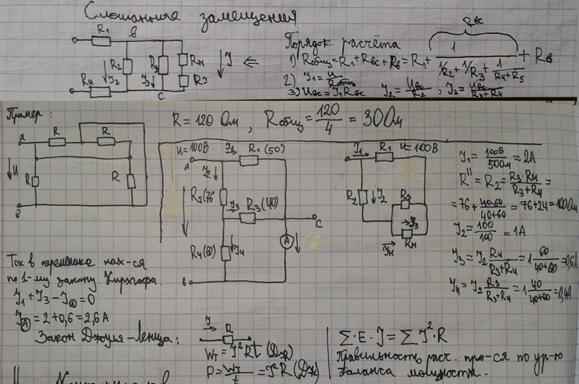 Смешанные замещения
R₁
B
R₂
R₃
R₄
R₅
Rн
I₂
C
I
⇐
Порядок расчёта
Rвс
1) Rобщ = R₁ + Rвс + R₆ = R₁ + 1 / (1/R₂ + 1/R₃ + 1/(R₄+R₅)) + R₆
2) I₁ = U/Rобщ
3) Uвс = I₁Rвс I₂ = Uвс/R₂ ; I₃ = Uвс/(R₃+R₄)
Пример:
R = 120 Ом, Rобщ = 120/4 = 30 Ом
a
R
R
U
R
R
в
U=100В
I₁
R₁(50)
a
I₂
R₂(76)
I₃
R₃(40)
C
R₄(60)
I₄
A
в
I₁
R₁
U=100В
R₂
I₂
R₃
I₃
R₄
I₄
I₁ = 100В/50Ом = 2А
R'' = R₂ + R₃·R₄/(R₃+R₄) =
= 76 + 40·60/(40+60) = 76+24 = 100Ом
I₂ = 100/100 = 1А
I₃ = I₂ R₄/(R₃+R₄) = 1 60/(40+60) = 0,6А
I₄ = I₂ R₃/(R₃+R₄) = 1 40/(40+60) = 0,4А
Ток в перемычке нах-ся
по 1-му закону Кирхгофа.
I₁ + I₃ − I(A) = 0
I(A) = 2 + 0,6 = 2,6А
Закон Джоуля-Ленца:
I
R
Wт = I²Rt (Дж)
P = Wт/t = I²R (Дж)
∑·E·I = ∑I²·R
Правильность расч. про-ся по ур-ю
баланса мощности.